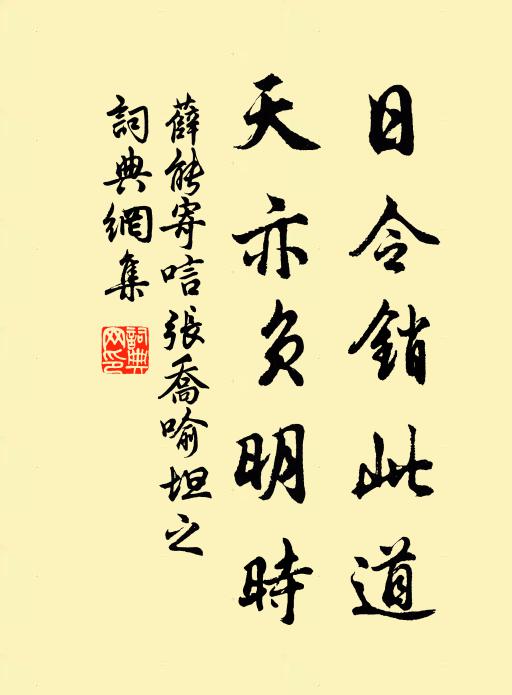 日令銷此道
天亦負明時
薛能寄唁張喬喻坦之
詞典網集
詞典網印